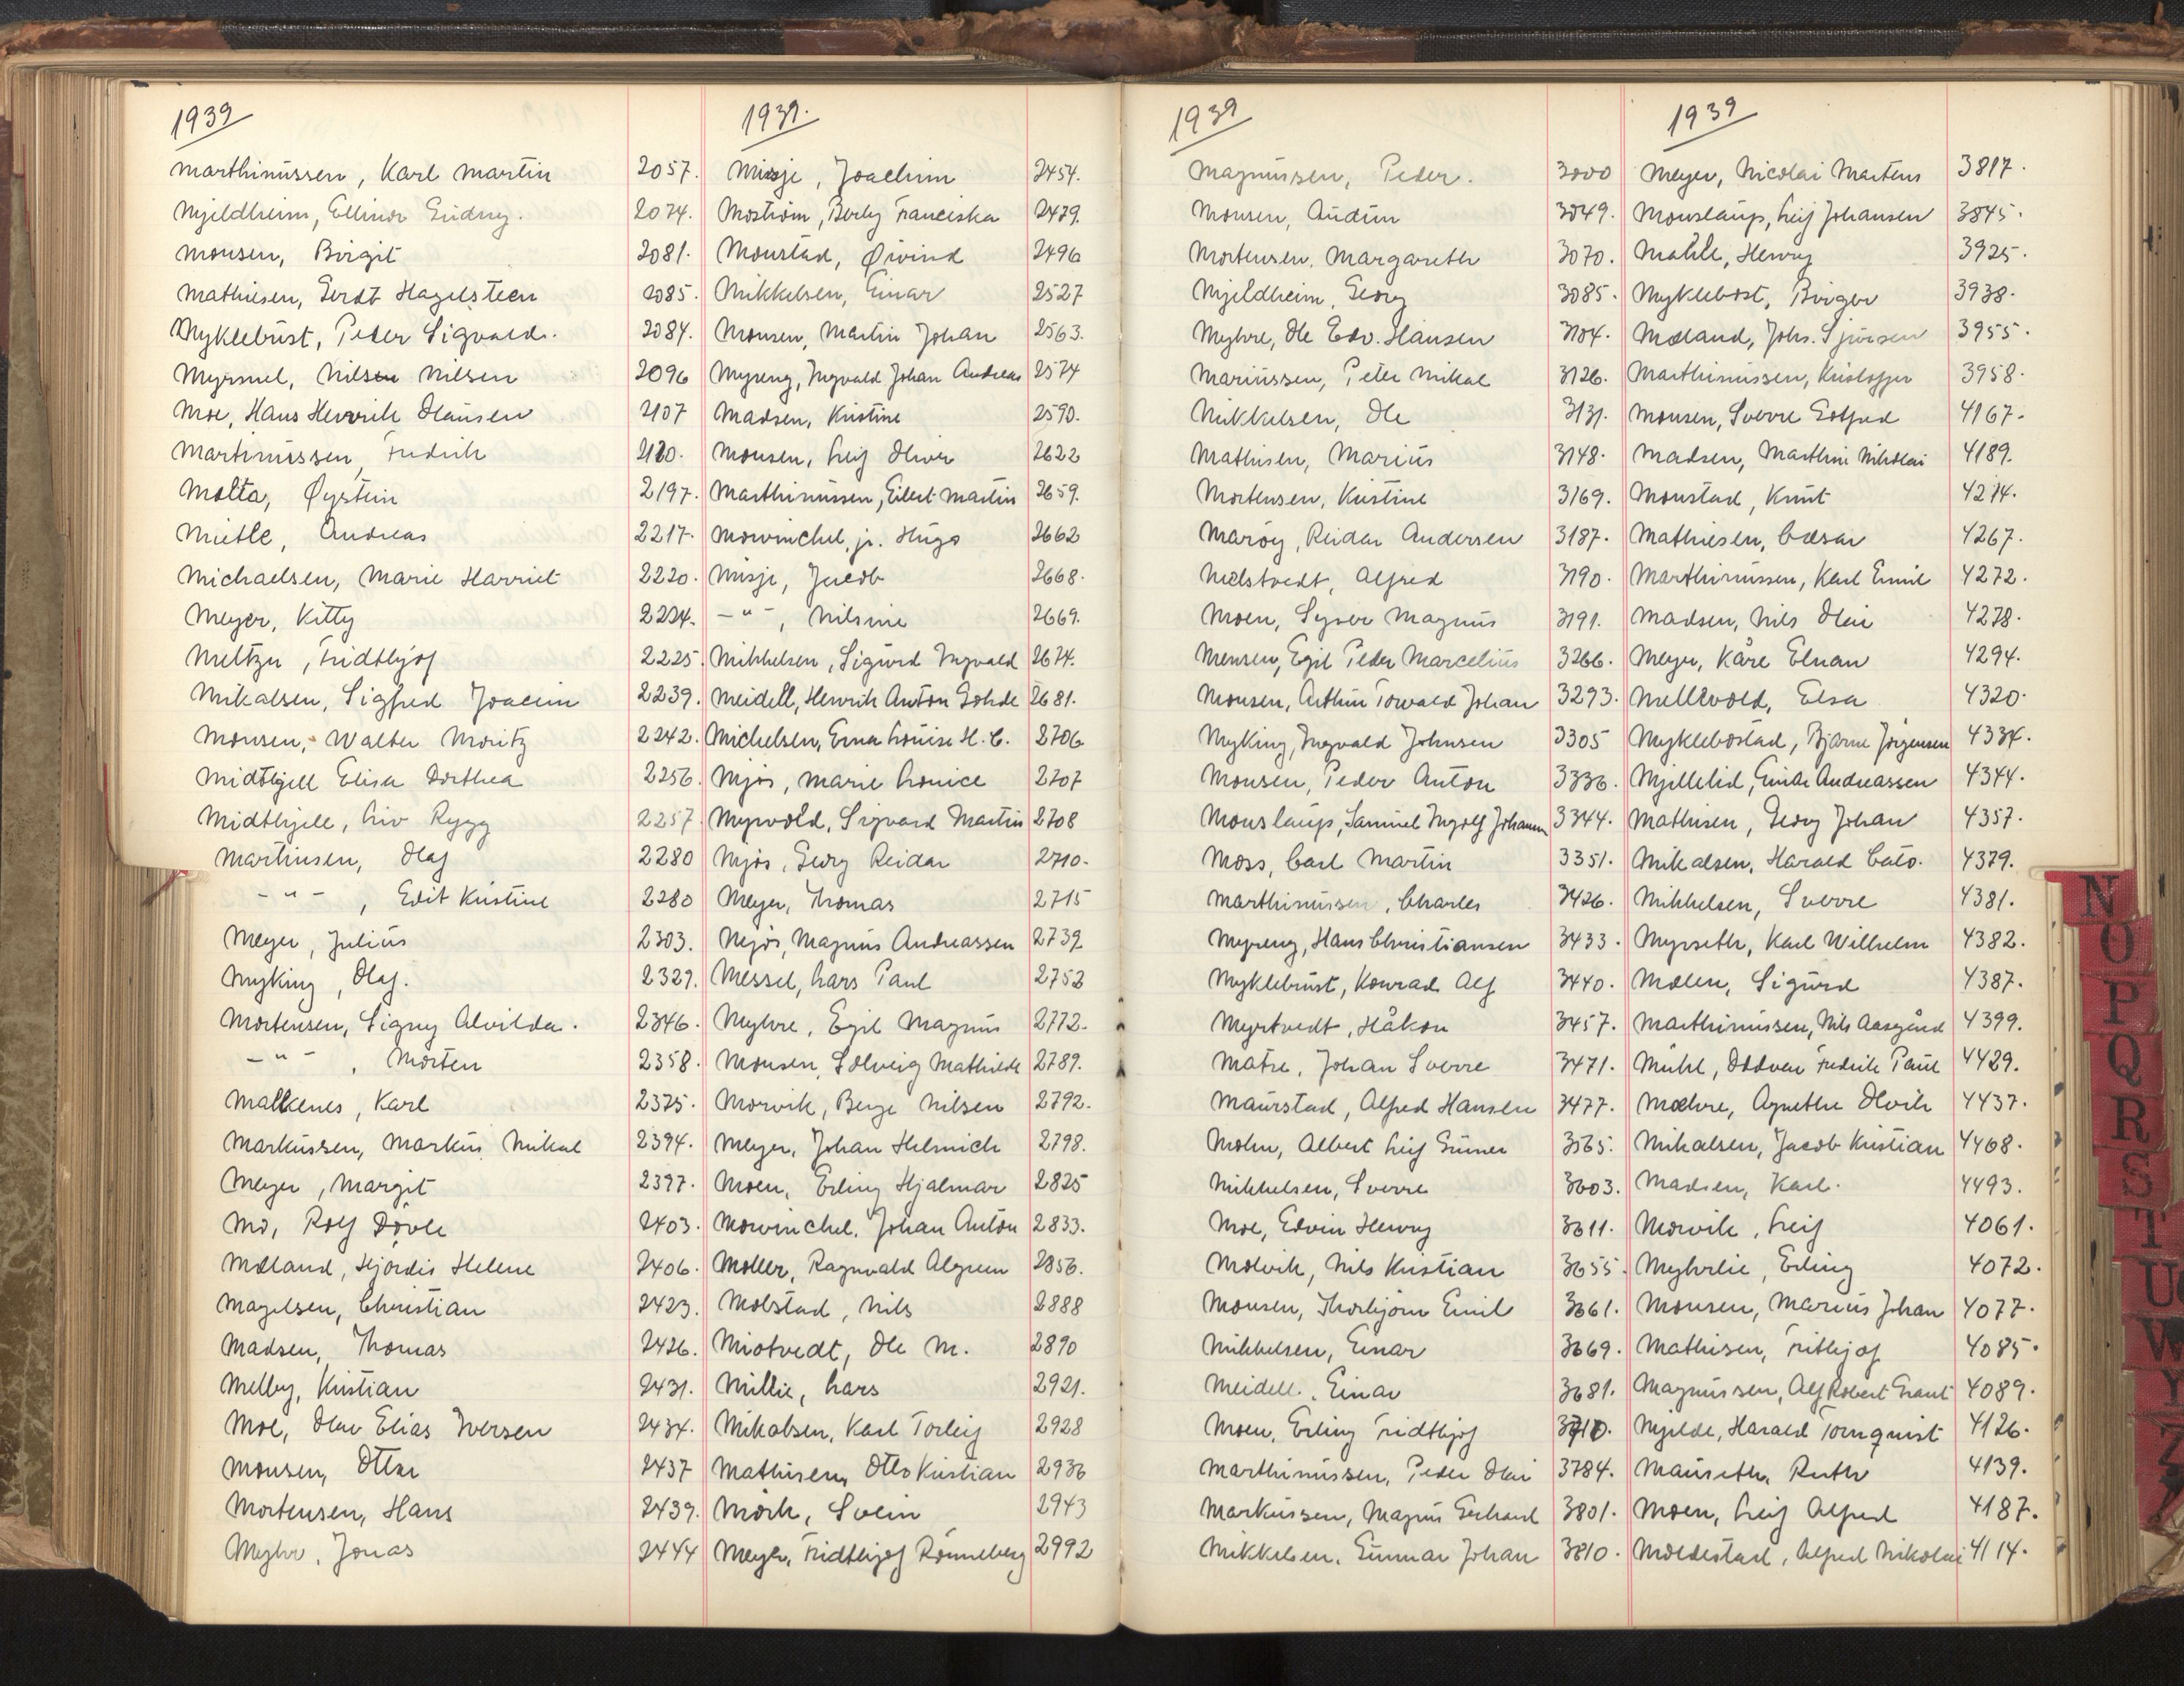 1939
Marthinussen, Karl Martin 2057.
Mjeldheim, Ellinor Gudny. 2074.
Monsen, Birgit 2081.
Mathiesen, Gerdt Hagelsteen 2085.
Myklebust, Peder Sigvald. 2084.
Myrmel, Nilsen Nilsen 2096
Moe, Hans Henrik Olausen 2107
Martinussen, Fredrik
Molta, Øystein 2197.
Mietle, Andreas 2217.
Michaelsen, Marie Harriet 2220.
Meyer, Kitty 2224.
Meltzer, Fridthjof 2225.
Mikalsen, Sigfred Joacim 2239.
Monsen, Walter Moritz 2242.
Midthjell Elisa Dorthea 2256.
Midthjell, Liv Rygg 2257.
Martinsen, Olaf 2280
- " - , Edit Kristine 2280
Meyer, Julius 2303.
Myking, Olaf. 2329.
Mortensen, Signy Alvilda. 2346.
- " - , Morten 2358.
Malkenes, Karl 2375.
Markussen, Markus Mikal 2394.
Meyer, Margit 2397.
Mo, Rolf Dövle 2403.
Mæland, Hjördis Helene 2406.
Magelsen, Christian 2423.
Madsen, Thomas 2426.
Melby, Kristian 2431.
Moe, Olav Elias Iversen 2434.
Monsen, Ottar 2437
Mortensen, Hans 2439.
Myhr, Jonas 2444
1939.
Misje, Joachim 2454.
Moström, Berly Franciska 2479.
Monstad, Øivind 2496
Mikkelsen, Einar 2527
Monsen, Martin Johan 2563.
Myreng, Ingvald Johan Andreas 2574
Madsen, Kristine 2590.
Monsen, Leif Oliver 2622
Marthinussen, Eilert Martin 2659.
Mowinckel, jr. Hugo 2662
Misje, Jacob 2668.
- " - , Nilsine 2669.
Mikkelsen, Sigurd Ingvald 2674.
Meidell, Henrik Anton Gohde 2681.
Michelsen, Erna Louise H. C. 2706
Mjös, Marie Lovice 2707
Myrvold, Sigvard Martin 2708
Mjös, Georg Reidar 2710.
Meyer, Thomas 2715
Mjös, Magnus Andreassen 2739
Messel, Lars Paul 2752
Myhre, Egil Magnus 2772.
Monsen, Solveig Mathilde 2789.
Morvik, Berge Nilsen 2792.
Meyer, Johan Helmich 2798.
Moen, Erling Hjalmar 2825
Mowinckel, Johan Anton 2833.
Møller, Ragnvald Algreen 2856.
Molstad, Nils 2888
Miotvedt, Ole M. 2890
Millie, Lars 2921.
Mikalsen, Karl Torleif 2928
Mathisen, Otto Kristian 2936
Mörk, Svein 2943
Meyer, Fridthjof Rönneberg 2992
1939
Magnussen, Peder. 3000
Monsen, Audun 3049.
Mortensen, Margareth 3070.
Mjeldheim, Georg 3085.
Myhre, Ole Edv. Hansen 3104.
Mariussen, Peter Mikal 3126.
Mikkelsen, Ole 3131.
Mathisen, Marius 3148.
Mortensen, Kristine 3169.
Maröy, Reidar Andersen 3187.
Mælstvedt, Alfred 3190.
Moen, Syver Magnus 3191.
Mensen, Egil Peder Marcelius 3266.
Monsen, Arthur Torvald Johan 3293.
Myking, Ingvald Johnsen 3305
Monsen, Peder Anton 3336.
Monslaup, Samuel Ingolf Johannes 3344.
Moss, Carl Martin 3351.
Marthinussen, Charles 3426.
Myreng, Hans Christiansen 3433.
Myklebust, Konrad Alf 3440.
Myrtvedt, Håkon 3457.
Matre, Johan Sverre 3471.
Maurstad, Alfred Hansen 3477.
Mohn, Albert Leif Gunner 3565.
Mikkelsen, Sverre 3603.
Moe, Edvin Henry 3611.
Molvik, Nils Kristian 3655.
Monsen, Thorbjörn Emil 3661.
Mikkelsen, Einar 3669.
Meidell, Einar 3681.
Moen, Erling Fridthjof
Marthinussen, Peder Olai 3784.
Markussen, Magnus Gerhard 3801.
Mikkelsen, Gunnar Johan 3810.
1939
Meyer, Nicolai Martens 3817.
Monslaup, Leif Johansen 3845.
Mahle, Henry 3925.
Myklebost, Birger 3938.
Mæland, Johs. Sjursen 3955.
Marthinussen, Kristoffer 3958.
Monsen, Sverre Gotfred 4167.
Madsen, Marthin Nikolai 4189.
Monstad, Knut 4214.
Mathiesen, Cæsar 4267.
Marthinussen, Karl Emil 4272.
Madsen, Nils Olai 4278.
Meyer, Kåre Elnan 4294.
Mellvold, Elsa 4320.
Myklebostad, Bjarne Jörgensen 4334.
Mjellelid, Einar Andreassen 4344.
Mathisen, Georg Johan 4357.
Mikalsen, Harald Cato. 4379.
Mikkelsen, Sverre 4381.
Myrseth, Karl Wilhelm 4382.
Mælen, Sigurd 4387.
Marthinussen, Nils Aasgård 4399.
Muhl, Oddvar Fredrik Paul 4429.
Mæhre, Agnethe Olvik 4437.
Mikalsen, Jacob Kristian 4468.
Madsen, Karl. 4493.
Morvik, Leif 4061.
Myhrlie, Erling 4072.
Monsen, Marius Johan 4077.
Mathisen, Frithjof 4085.
Magnussen, Alf Robert Grant 4089.
Mjelde, Harald Tornquist 4126.
Maurseth, Ruth 4139.
Moen, Leif Alfred 4187.
Moldestad, Alfred Nikolai 4114.
N
O
P
Q
R
S
T
U
W
Y
Z